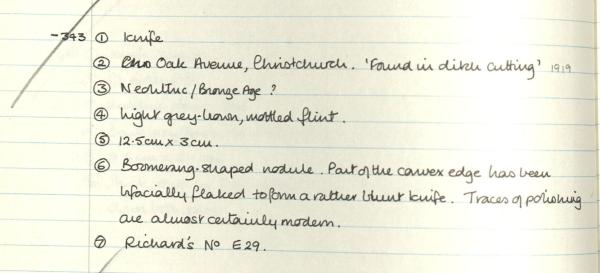 -343 ① Knife
② Oak Avenue, Christchurch. 'Found in ditch cutting' 1919
③ Neolithic / Bronze Age ?
④ Light grey-brown, mottled flint.
⑤ 12.5cm x 3cm.
⑥ Boomerang-shaped nodule. Part of the convex edge has been
bifacially flaked to form a rather blunt knife. Traces of polishing
are almost certainly modern.
⑦ Richard's No E29.